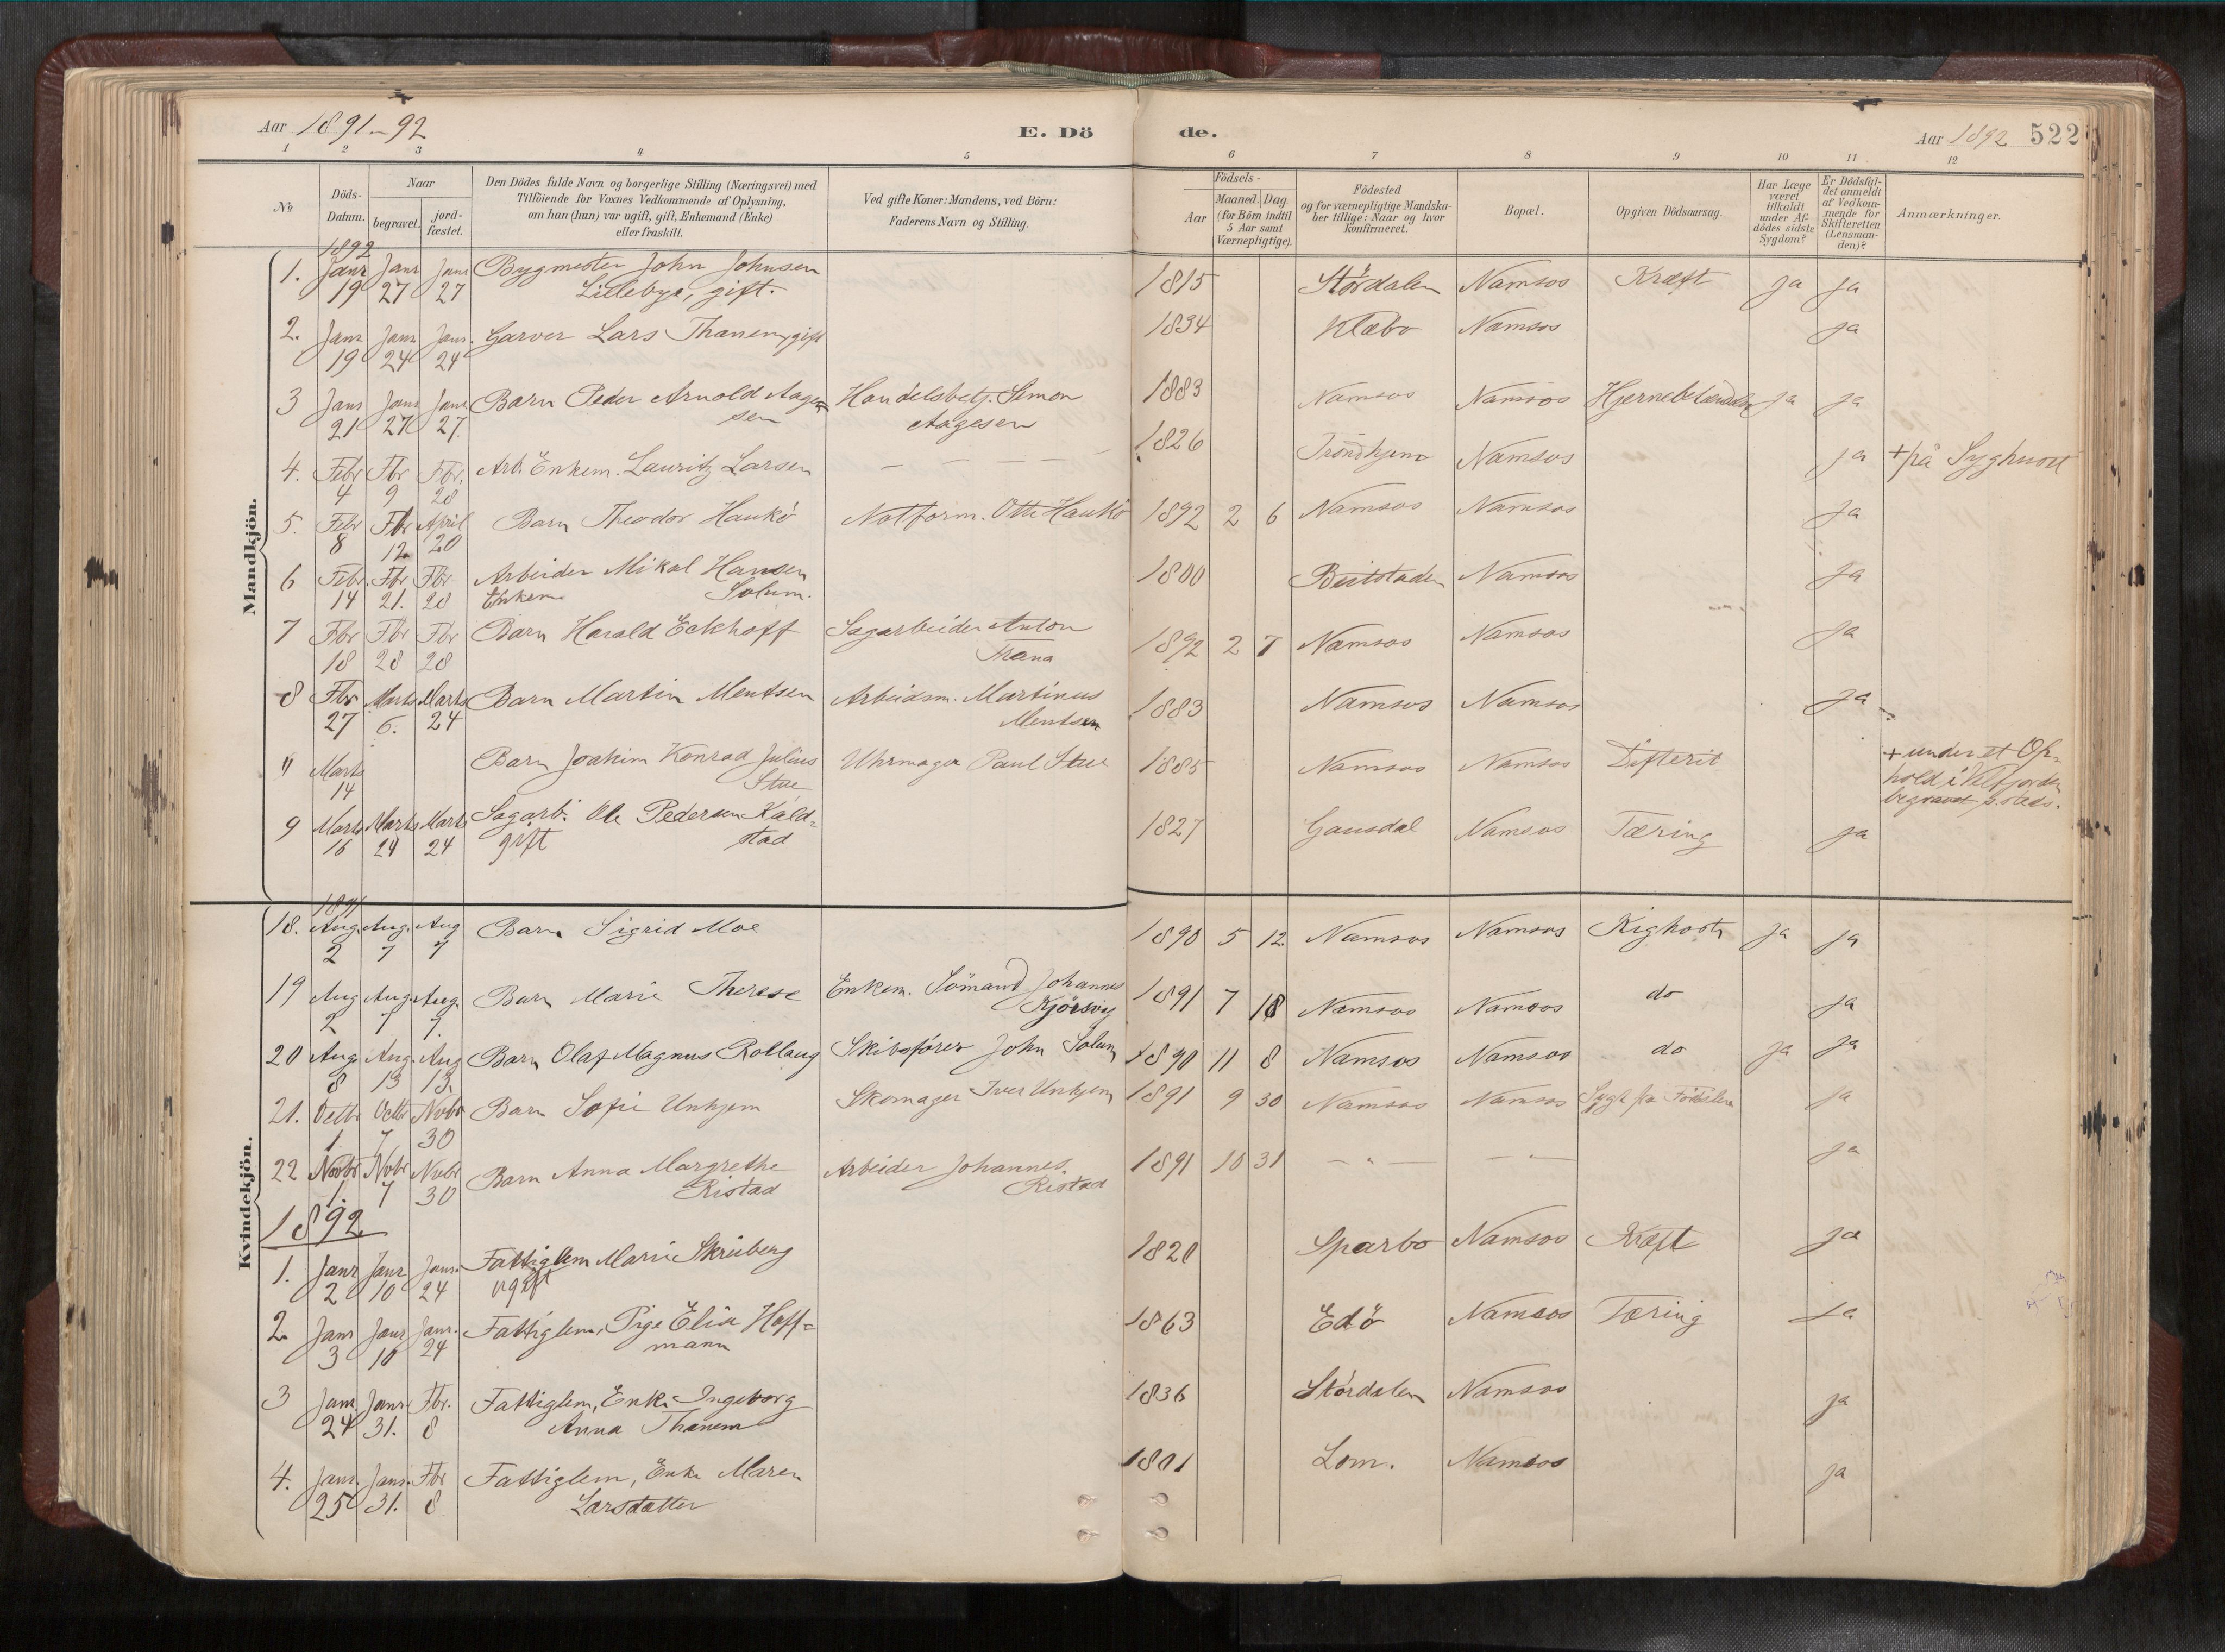 Aar 1891-92
E. Dö
de.
Aar 1892 522
1 2 3 4 5 6 7 8 9 10 11 12
No
Döds-
Datum.
Naar
begravet.
jord-
fæstet.
Den Dödes fulde Navn og borgerlige Stilling (Næringsvei) med
Tilföiende for Voxnes Vedkommende af Oplysning,
om han (hun) var ugift, gift, Enkemand (Enke)
eller fraskilt.
Ved gifte Koner: Mandens, ved Börn:
Faderens Navn og Stilling.
Födsels-
Aar
Maaned. Dag.
(for Börn indtil
5 Aar samt
Værnepligtige).
Födested
og for værnepligtige Mandska-
ber tillige: Naar og hvor
konfirmeret.
Bopæl.
Opgiven Dödsaarsag.
Har Læge
været
tilkaldt
under Af-
dödes sidste
Sygdom?
Er Dödsfal-
det anmeldt
af Vedkom-
mende for
Skifteretten
(Lensman-
den)?
Anmærkninger.
Mandkjön.
1892
1. Janr Janr Janr Bygmester John Johnsen 1815 Stördalen Namsos Kræft ja ja
19 27 27 Lillebye, gift.
2. Janr Janr Janr. Garver Lars Thanem, gift 1834 Klæbo Namsos ja
19 24 24
3 Janr Janr Janr Barn Peder Arnold Aage= Handelsbetj. Simon 1883 Namsos Namsos Hjernebetændelse ja ja
21 27 27. sen Aagesen
4. Febr Fbr Fbr. Arb. Enkem. Lauritz Larsen — — — — 1826 Trondhjem Namsos ja + på Syghuset
4 9 28
5. Febr Fbr April Barn Theodor Haukö Notform. Otte Haukö 1892 2 6 Namsos Namsos ja
8 12 20
6 Febr. Fbr Fbr Arbeider Mikal Hansen 1800 Beitstaden Namsos ja
14 21. 28 Enkem. Solum.
7 Fbr Fbr Fbr Barn Harald Eckhoff Sagarbeider Anton 1892 2 7 Namsos Namsos ja
18 28 28 Strana
8 Fbr Marts Marts Barn Martin Mentsen Arbeidsm. Martinus 1883 Namsos Namsos ja
27 6. 24 Mentsen
" Marts Barn Joakim Konrad Julius Uhrmager Paul Stue 1885 Namsos Namsos Difterit + under et Op=
14 Stue hold i Velfjorden
begravet s. steds.
9 Marts Marts Marts Sagarb. Ole Pedersen Kald= 1827 Gausdal Namsos Tæring ja
16 24 24 gift stad
Kvindekjön.
1891
18. Aug. Aug. Aug Barn Sigrid Moe 1890 5 12. Namsos Namsos Kighoste ja ja
2 7 7
19 Aug Aug Aug. Barn Marie Therese Enkem. Sömand Johannes 1891 7 18 Namsos Namsos do ja
2 7 7. Kjörsvig
20 Aug. Aug. Aug Barn Olaf Magnus Rollaug Skibsförer John Solum 1890 11 8 Namsos Namsos do ja ja
8 13 13.
21. Octbr Octbr Novbr Barn Sofie Unhjem Skomager Iver Unhjem 1891 9 30 Namsos Namsos Sygt fra Födselen ja
1 7 30
22 Novbr Nvbr Nvbr Barn Anna Margrethe Arbeider Johannes 1891 10 31 — " — — " — ja
1. 7 30 Ristad Ristad
1892
1. Janr Janr Janr. Fattiglem Marie Skruberg 1820 Sparbo Namsos Kræft ja
2 10 24 ugift
2. Janr Janr Janr. Fattiglem, Pige Elia Hoff= 1863 Edö Namsos Tæring ja
3 10 24 mann
3 Janr. Janr Fbr. Fattiglem, Enke Ingeborg 1836 Stördalen Namsos ja
24 31. 8 Anna Thanem
4. Janr. Janr. Fbr Fattiglem, Enke Maren 1801 Lom. Namsos ja
25 31. 8 Larsdatter